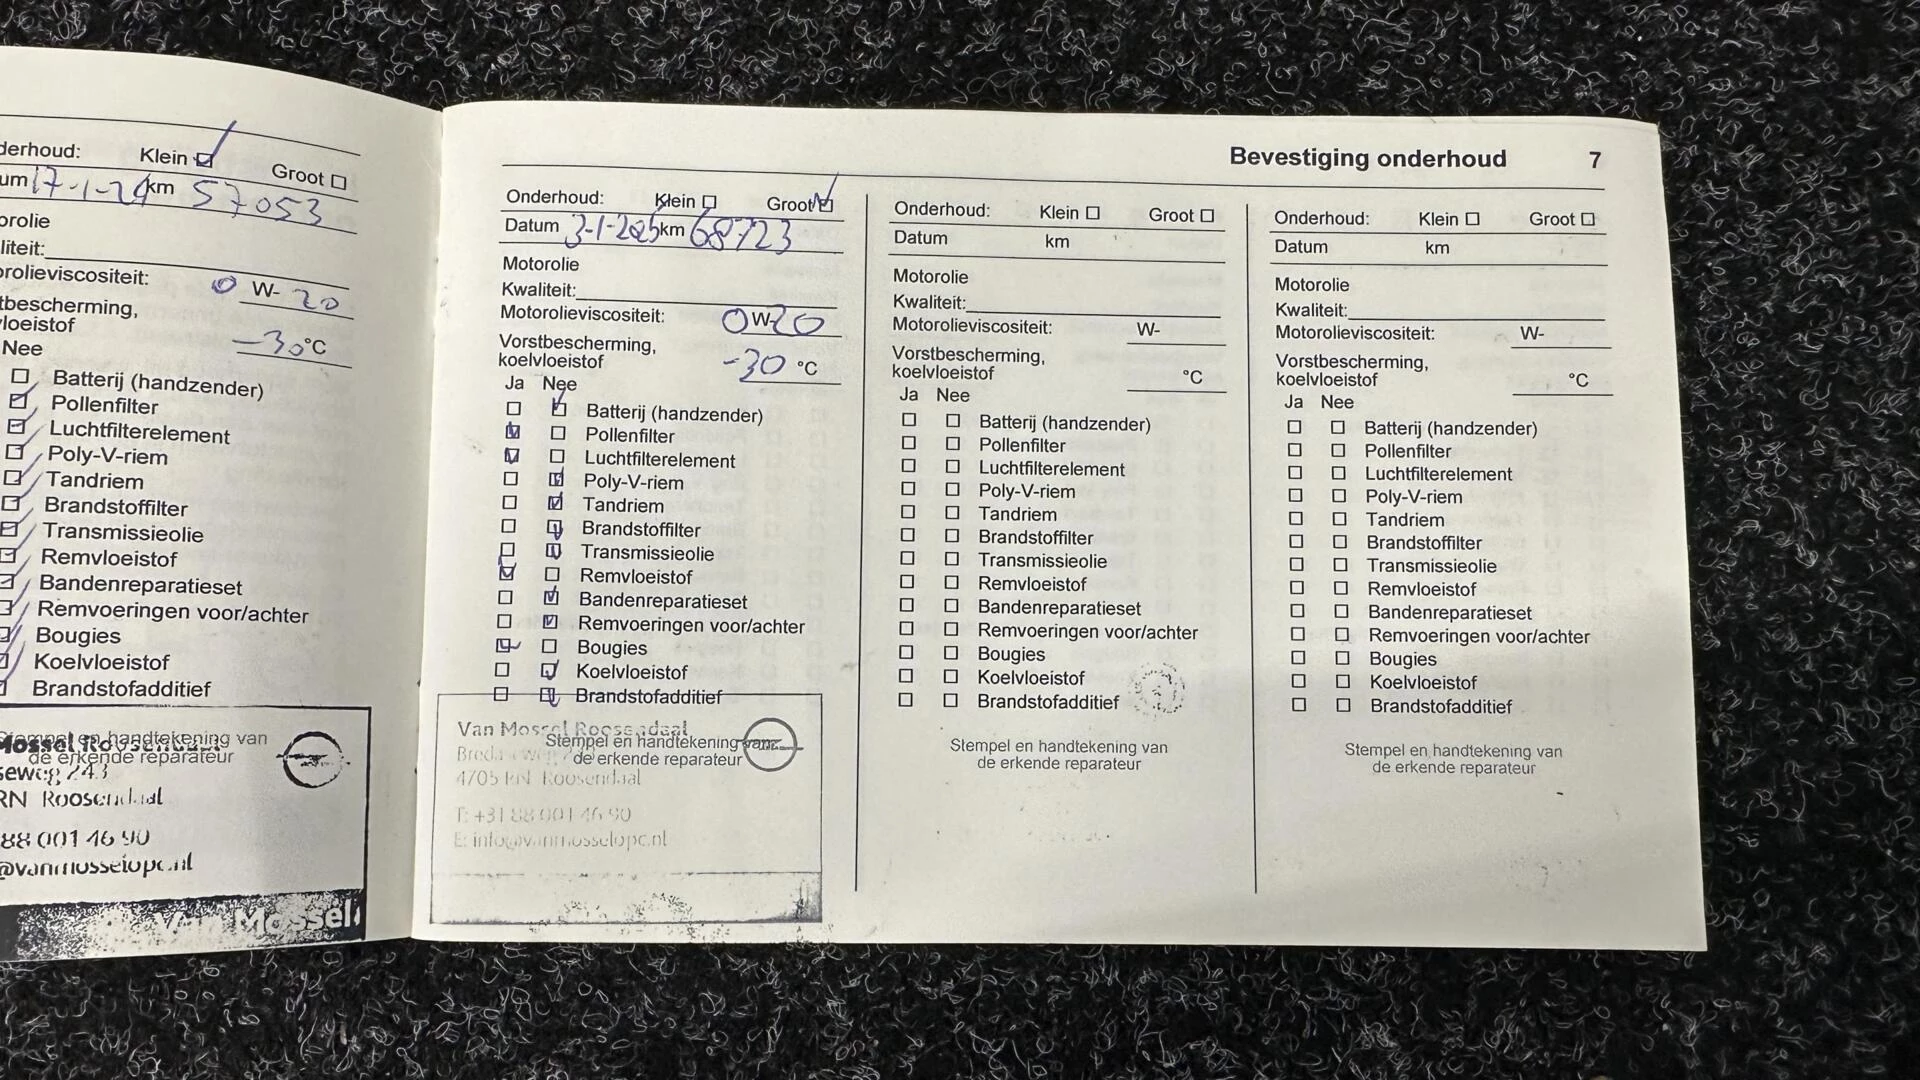 derhoud: Klein Groot
um 17-1-24 km 57053
orolie
liteit:
orolieviscositeit: 0 W- 20
tbescherming,
loeistof -30 °C
Nee
Batterij (handzender)
Pollenfilter
Luchtfilterelement
Poly-V-riem
Tandriem
Brandstoffilter
Transmissieolie
Remvloeistof
Bandenreparatieset
Remvoeringen voor/achter
Bougies
Koelvloeistof
Brandstofadditief
Stempel en handtekening van
de erkende reparateur
Mossel Roosendaal
seweg 243
RN Roosendaal
88 001 46 90
@vanmosselopc.nl
Van Mossel
Bevestiging onderhoud 7
Onderhoud: Klein Groot
Datum 3-1-2025 km 68723
Motorolie
Kwaliteit:
Motorolieviscositeit: 0 W- 20
Vorstbescherming,
koelvloeistof -30 °C
Ja Nee
Batterij (handzender)
Pollenfilter
Luchtfilterelement
Poly-V-riem
Tandriem
Brandstoffilter
Transmissieolie
Remvloeistof
Bandenreparatieset
Remvoeringen voor/achter
Bougies
Koelvloeistof
Brandstofadditief
Stempel en handtekening van
de erkende reparateur
Van Mossel Roosendaal
4705 RN Roosendaal
T: +31 88 001 46 90
E: info@vanmosselopc.nl
Onderhoud: Klein Groot
Datum km
Motorolie
Kwaliteit:
Motorolieviscositeit: W-
Vorstbescherming,
koelvloeistof °C
Ja Nee
Batterij (handzender)
Pollenfilter
Luchtfilterelement
Poly-V-riem
Tandriem
Brandstoffilter
Transmissieolie
Remvloeistof
Bandenreparatieset
Remvoeringen voor/achter
Bougies
Koelvloeistof
Brandstofadditief
Stempel en handtekening van
de erkende reparateur
Onderhoud: Klein Groot
Datum km
Motorolie
Kwaliteit:
Motorolieviscositeit: W-
Vorstbescherming,
koelvloeistof °C
Ja Nee
Batterij (handzender)
Pollenfilter
Luchtfilterelement
Poly-V-riem
Tandriem
Brandstoffilter
Transmissieolie
Remvloeistof
Bandenreparatieset
Remvoeringen voor/achter
Bougies
Koelvloeistof
Brandstofadditief
Stempel en handtekening van
de erkende reparateur